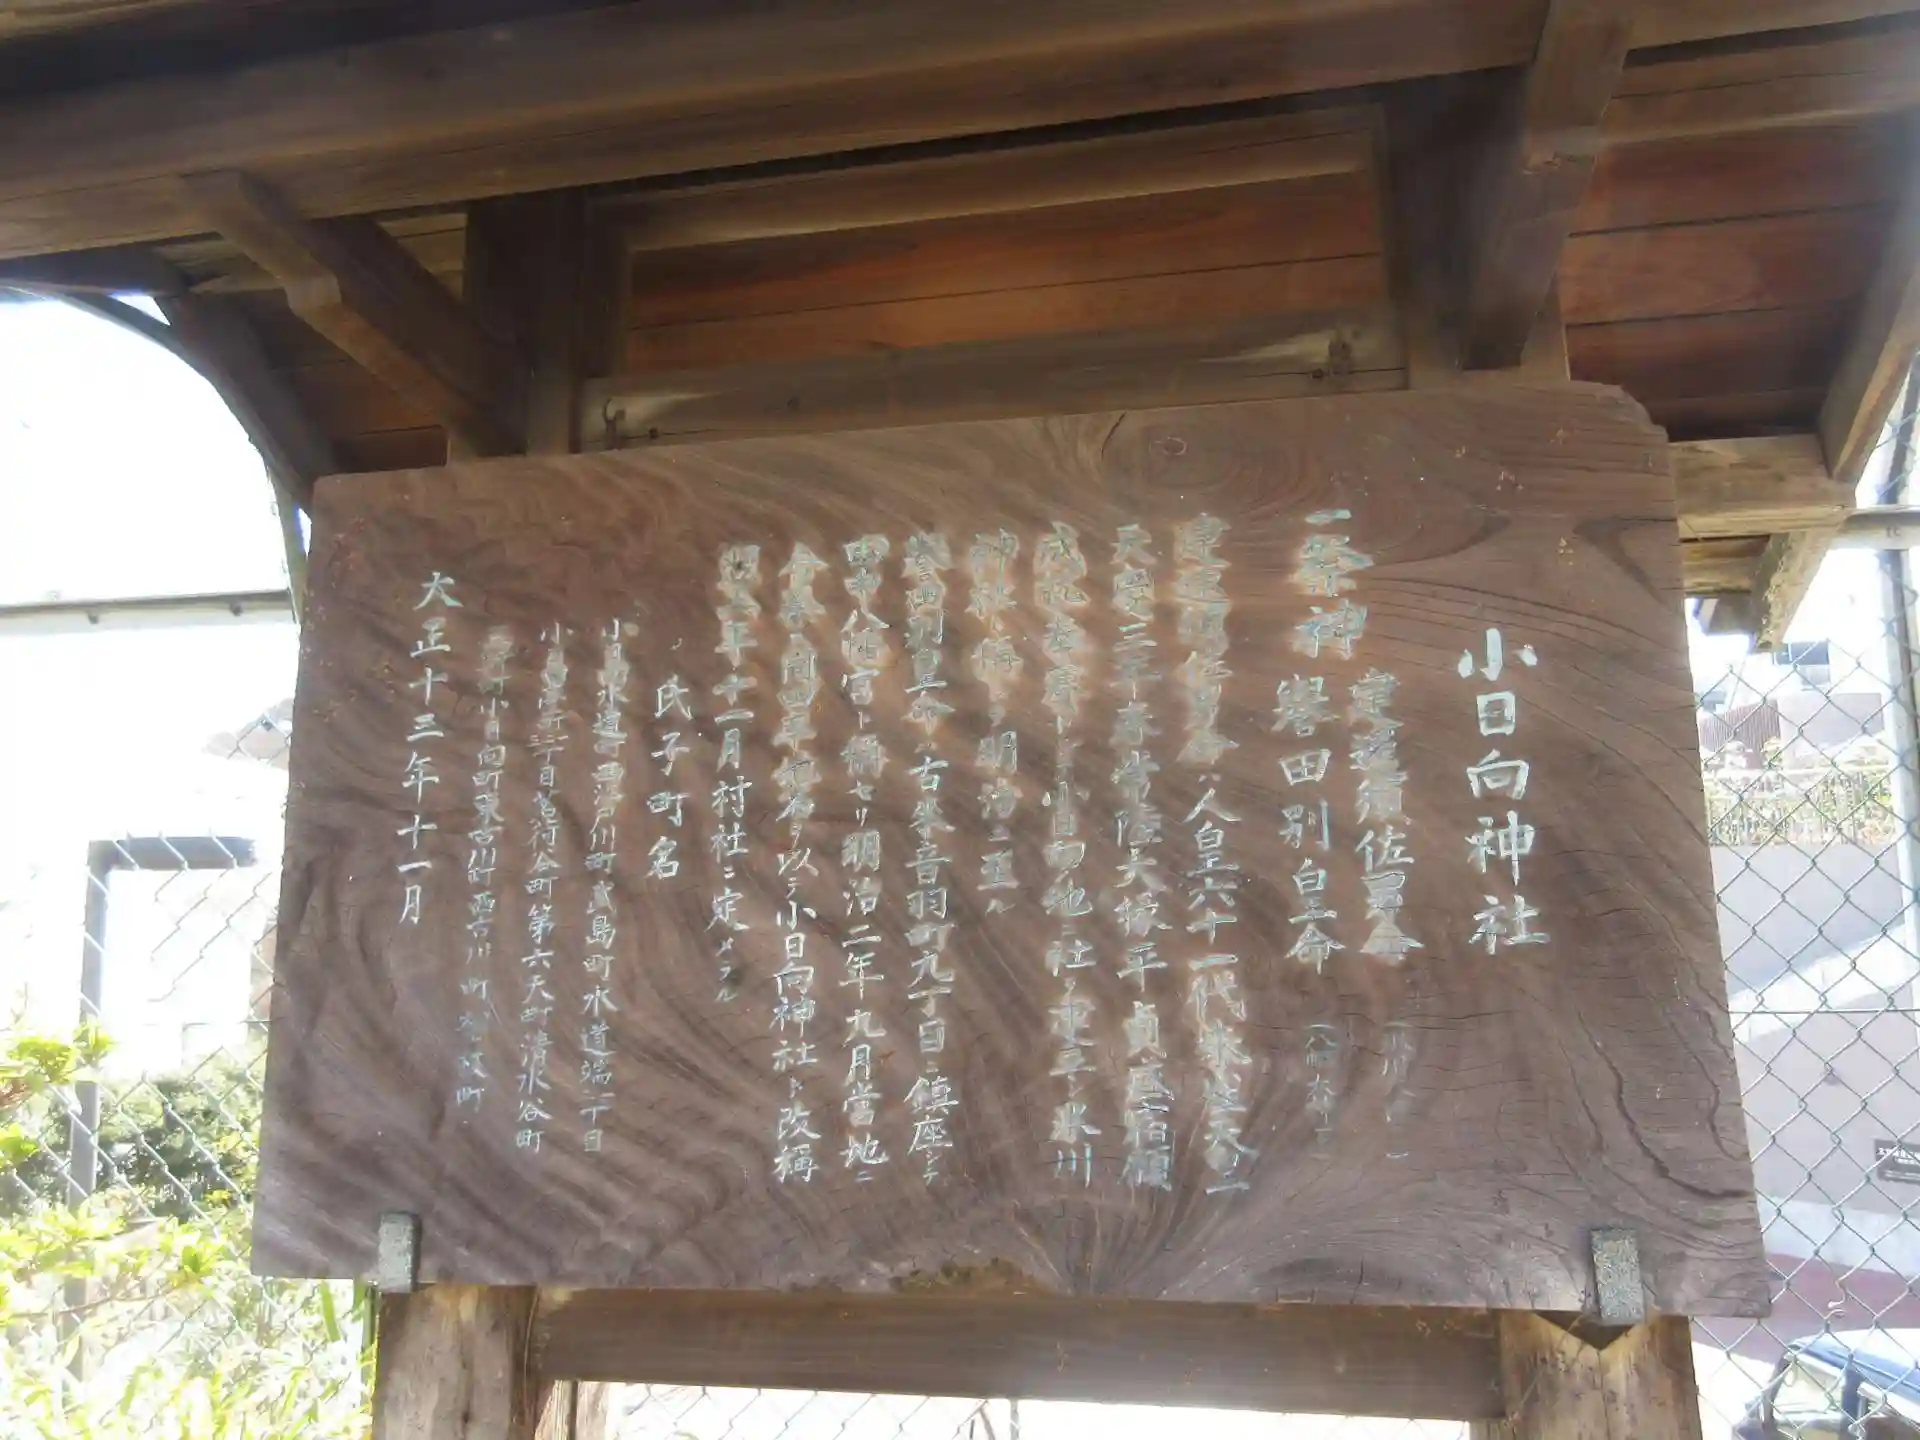 小日向神社
一祭神 建速須佐男命
譽田別皇命
建速須佐男命ハ人皇六十一代朱雀天皇
天慶三年春常陸大掾平貞盛宿願
成就奉賽トシテ小日向ノ地ニ社ヲ建立シ氷川
神社ト稱シテ明治ニ至ル
譽田別皇命ハ古來音羽町九丁目ニ鎮座シテ
田中八幡宮ト稱セリ明治二年九月當地ニ
合奉シ同四年地名ヲ以テ小日向神社ト改稱
同五年十一月村社ニ定メラル
氏子町名
小日向水道町西江戸川町武島町水道端二丁目
第六天町清水谷町
小日向町東古川町西古川町松ヶ枝町
大正十三年十一月